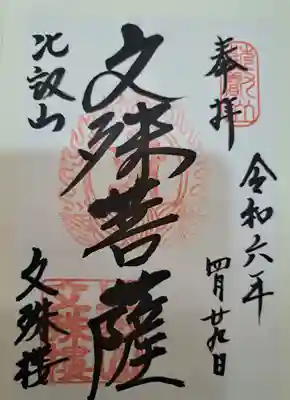 奉拝
令和六年
四月廿九日
文殊菩薩
比叡山
文殊楼